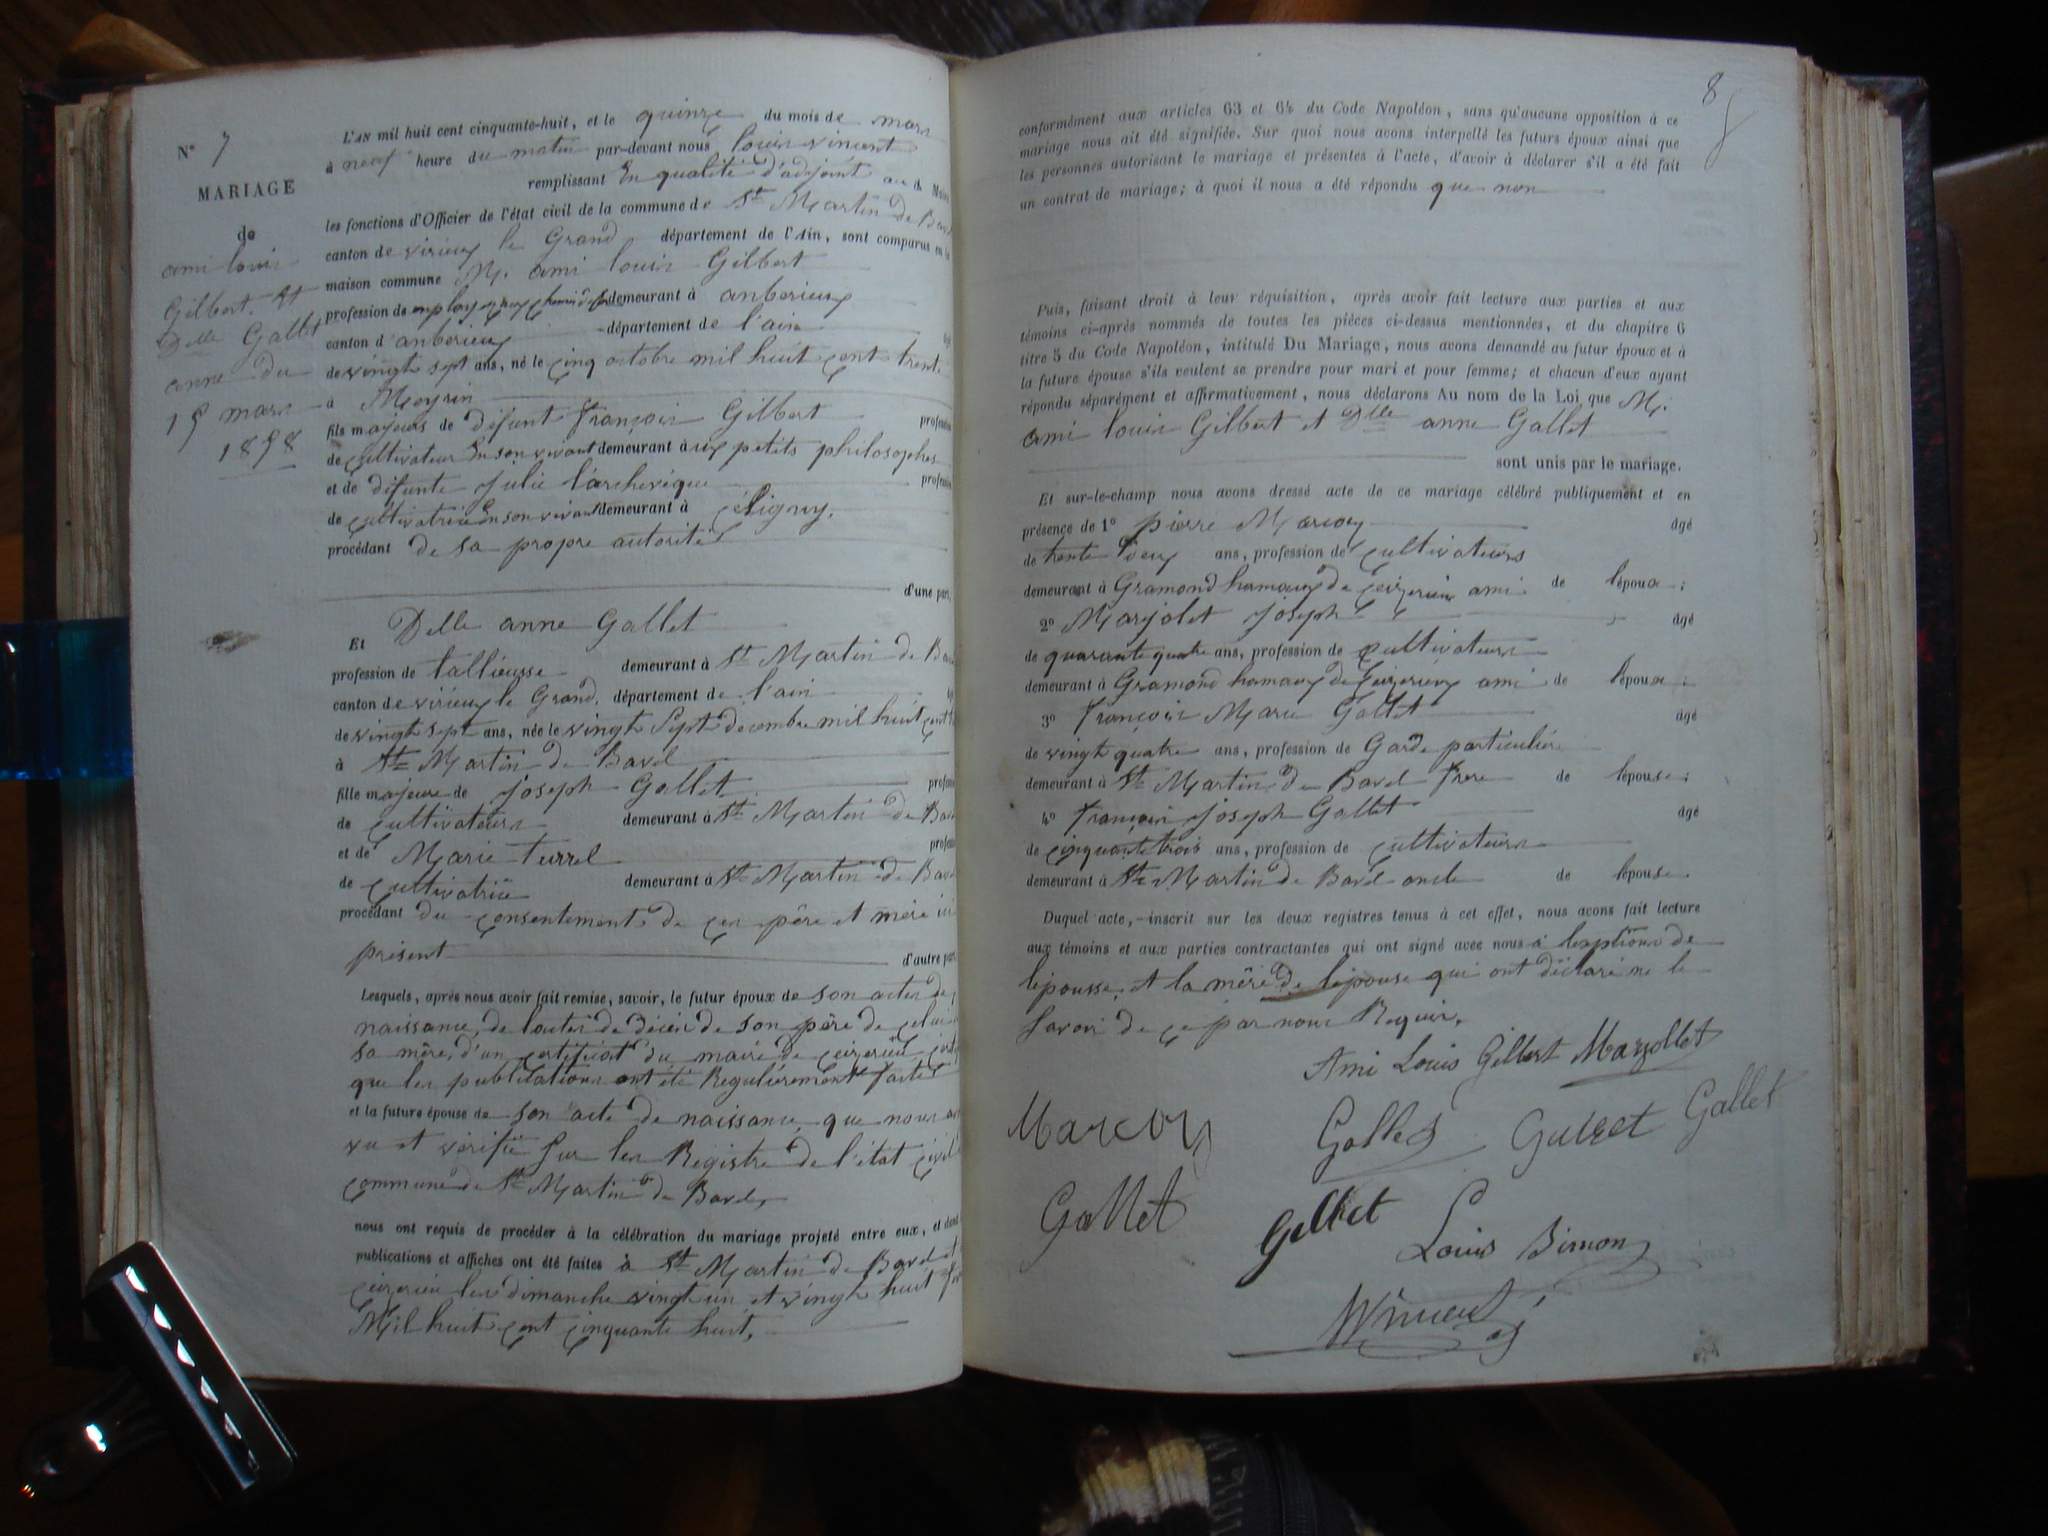 N° 7
MARIAGE
de
ami louis
Gilbert, et
Delle Gallet
anne du
15 mars
1858
L'AN mil huit cent cinquante-huit, et le quinze du mois de mars
à neuf heure du matin par-devant nous louis vincent
remplissant En qualité d'adjoint au d. Maire
les fonctions d'Officier de l'état civil de la commune de St Martin de Bavel
canton de virieux le Grand département de l'Ain, sont comparus en la
maison commune M. ami louis Gilbert
profession de employé aux chemin de fer demeurant à anberieux
canton d'anberieux département de l'ain
de vingt sept ans, né le cinq octobre mil huit cent trente
à Meyrin
fils majeurs de défunt françois Gilbert profession
de cultivateur En son vivant demeurant à ux petits philosophes
et de défunte Julie l'archevêque profession
de cultivatrice En son vivant demeurant à céligny.
procédant de sa propre autorité
d'une part,
Et Delle anne Gallet
profession de tallieusse demeurant à St Martin de Bavel
canton de virieux le Grand. département de l'ain
de vingt sept ans, née le vingt Sept decembre mil huit cent
à St Martin de Bavel
fille majeure de joseph Gallet profession
de cultivateurs demeurant à St Martin de Bavel
et de Marie turrel profession
de cultivatrice demeurant à St Martin de Bavel
procédant du consentement de ces père et mère ici
présent d'autre part.
Lesquels, après nous avoir fait remise, savoir, le futur époux de son actes de
naissance, de l'autes de décés de son père de celui de
sa mère, d'un certificat du maire de ceizerieu
que les publications ont été Regulièrement faites
et la future épouse de son acte de naissance, que nous avons
vu et vérifié sur les Registre de l'état civil
commune de St Martin de Bavel,
nous ont requis de procéder à la célébration du mariage projeté entre eux, et dont
publications et affiches ont été faites à St Martin de Bavel et
ceizerieu les dimanche vingt un et vingt huit
Mil huit cent cinquante huit,
8
conformément aux articles 63 et 64 du Code Napoléon, sans qu'aucune opposition à ce
mariage nous ait été signifiée. Sur quoi nous avons interpellé les futurs époux ainsi que
les personnes autorisant le mariage et présentes à l'acte, d'avoir à déclarer s'il a été fait
un contrat de mariage; à quoi il nous a été répondu que non
Puis, faisant droit à leur réquisition, après avoir fait lecture aux parties et aux
témoins ci-après nommés de toutes les pièces ci-dessus mentionnées, et du chapitre 6
titre 5 du Code Napoléon, intitulé Du Mariage, nous avons demandé au futur époux et à
la future épouse s'ils veulent se prendre pour mari et pour femme; et chacun d'eux ayant
répondu séparément et affirmativement, nous déclarons Au nom de la Loi que M.
ami louis Gilbert et Delle anne Gallet
sont unis par le mariage.
Et sur-le-champ nous avons dressé acte de ce mariage célébré publiquement et en
présence de 1° pierre Marcoz âgé
de trente deux ans, profession de cultivateurs
demeurant à Gramond hamaux de ceizerieu ami de l'époux;
2° Marjolet joseph âgé
de quarante quatre ans, profession de cultivateurs
demeurant à Gramond hamaux de Ceizerieux ami de l'époux;
3° françois Marie Gallet âgé
de vingt quatre ans, profession de Garde particulière
demeurant à St Martin de Bavel frere de l'épouse;
4° françois joseph Gallet âgé
de cinquante trois ans, profession de cultivateurs
demeurant à St Martin de Bavel oncle de l'épouse.
Duquel acte, inscrit sur les deux registres tenus à cet effet, nous avons fait lecture
aux témoins et aux parties contractantes qui ont signé avec nous à lexptions de
lépousse, et la mère de lépouse qui ont déclaré ne le
savoir de ce par nous Requis.
Ami Louis Gilbert Marjollet
Marcoz Gallet Gallet
Gallet Louis Simon
Vincent